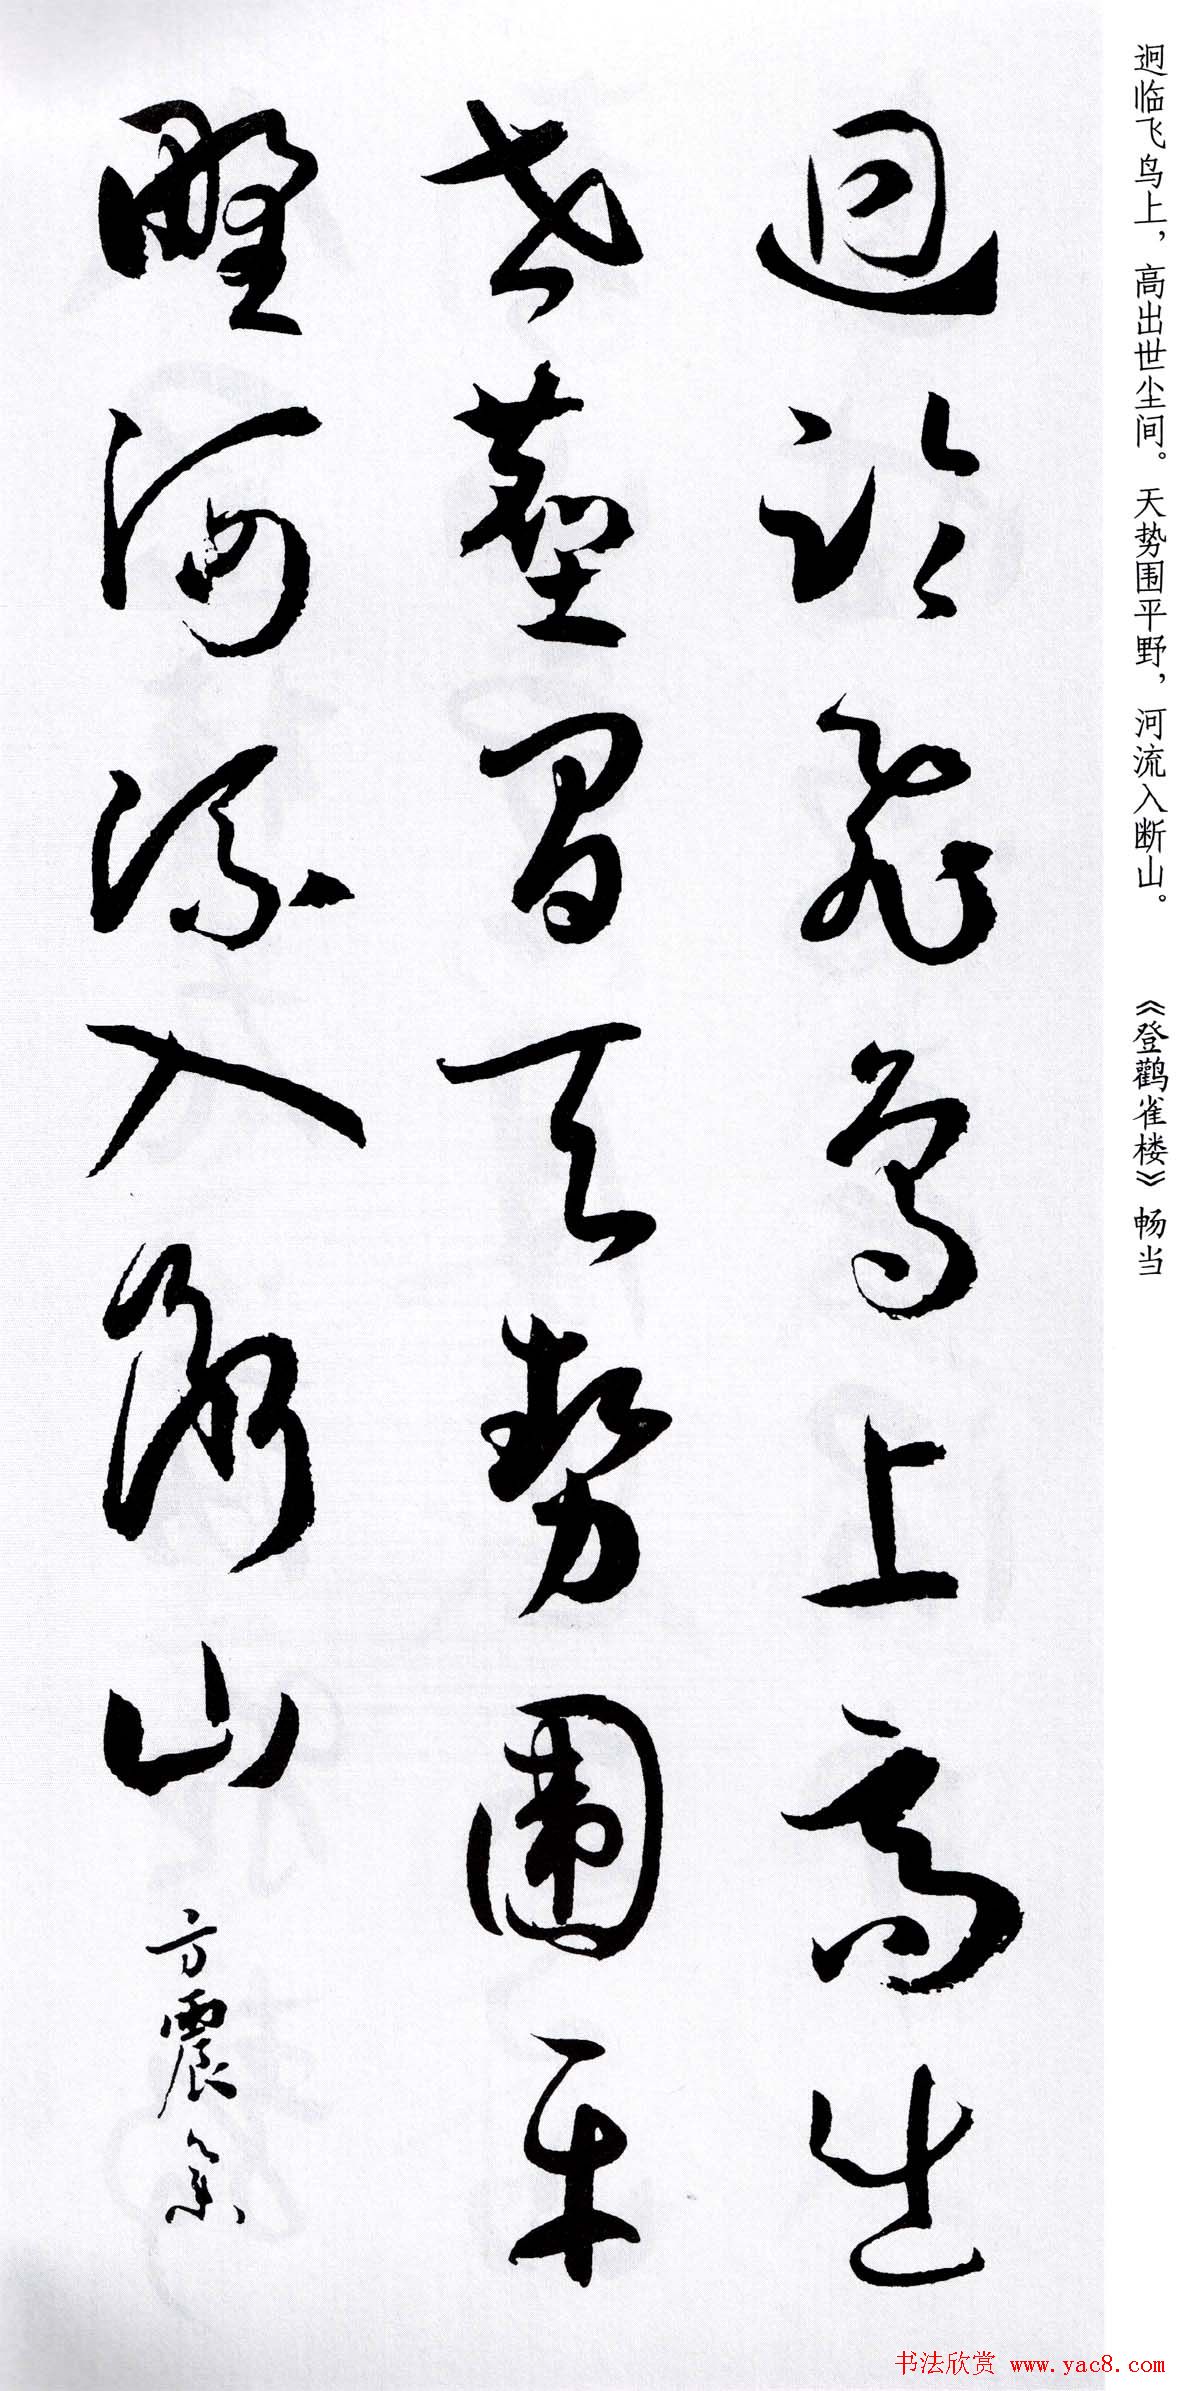 迥临飞鸟上，高出世尘间。天势围平野，河流入断山。 《登鹳雀楼》 畅当
迥临飞鸟上高出
世尘间天势围平
野河流入断山
方震
书法欣赏 www.yac8.com